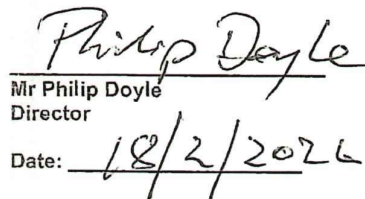 Philip Doyle
Mr Philip Doyle
Director
Date: 18/2/2026